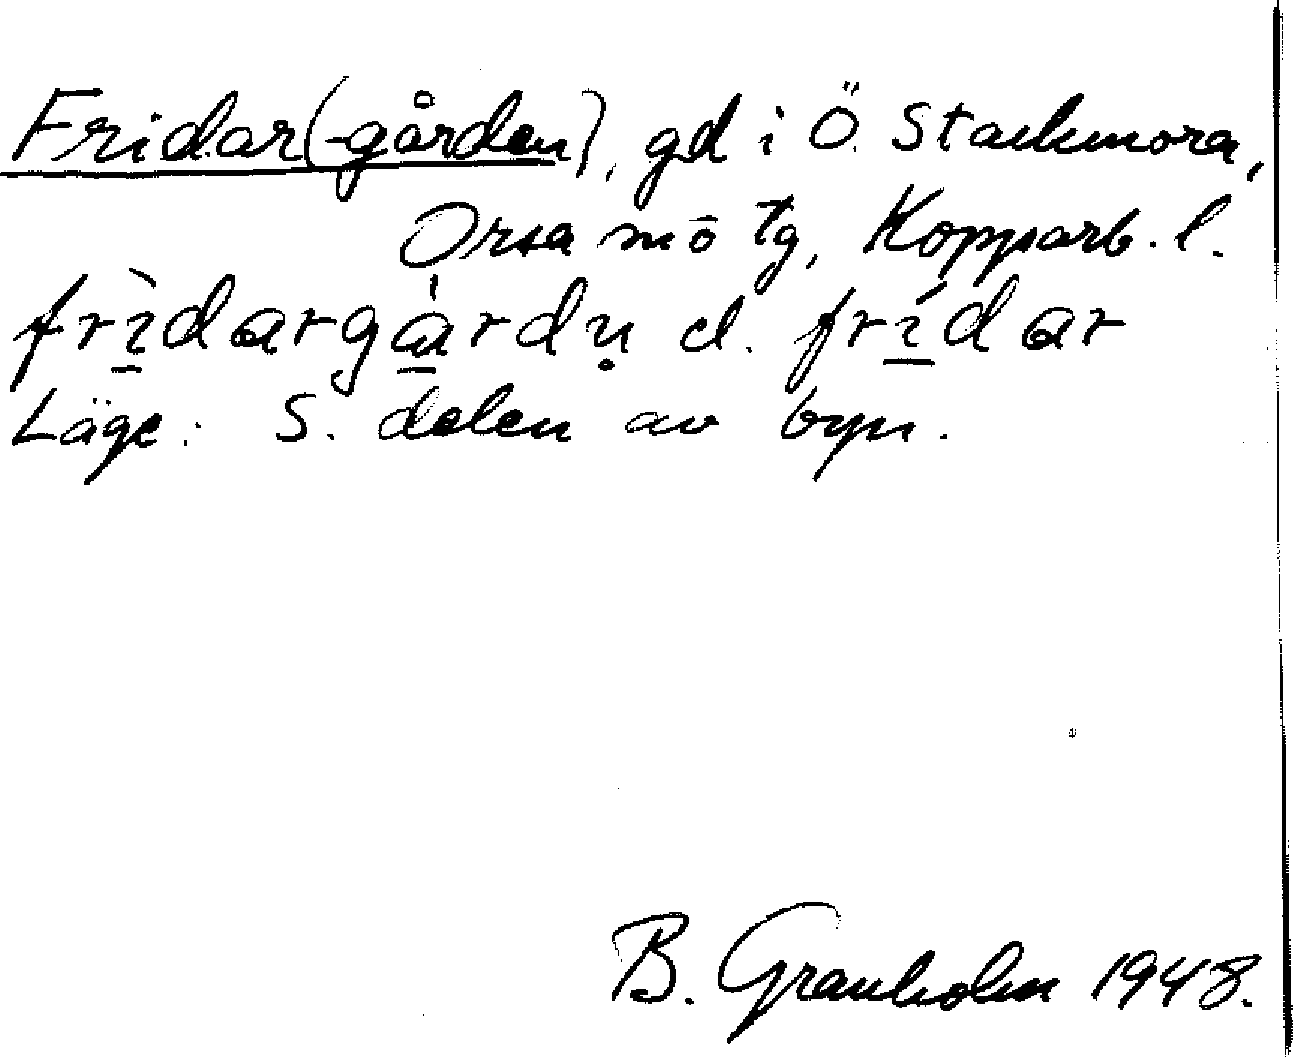 Fridar(-gården), gd i Ö. Stackmora,
Orsa sn o tg, Kopparb. l.
frì̠dargå̠̀rdṇ el. frí̠dar
Läge: S. delen av byn.
B. Granholm 1948.